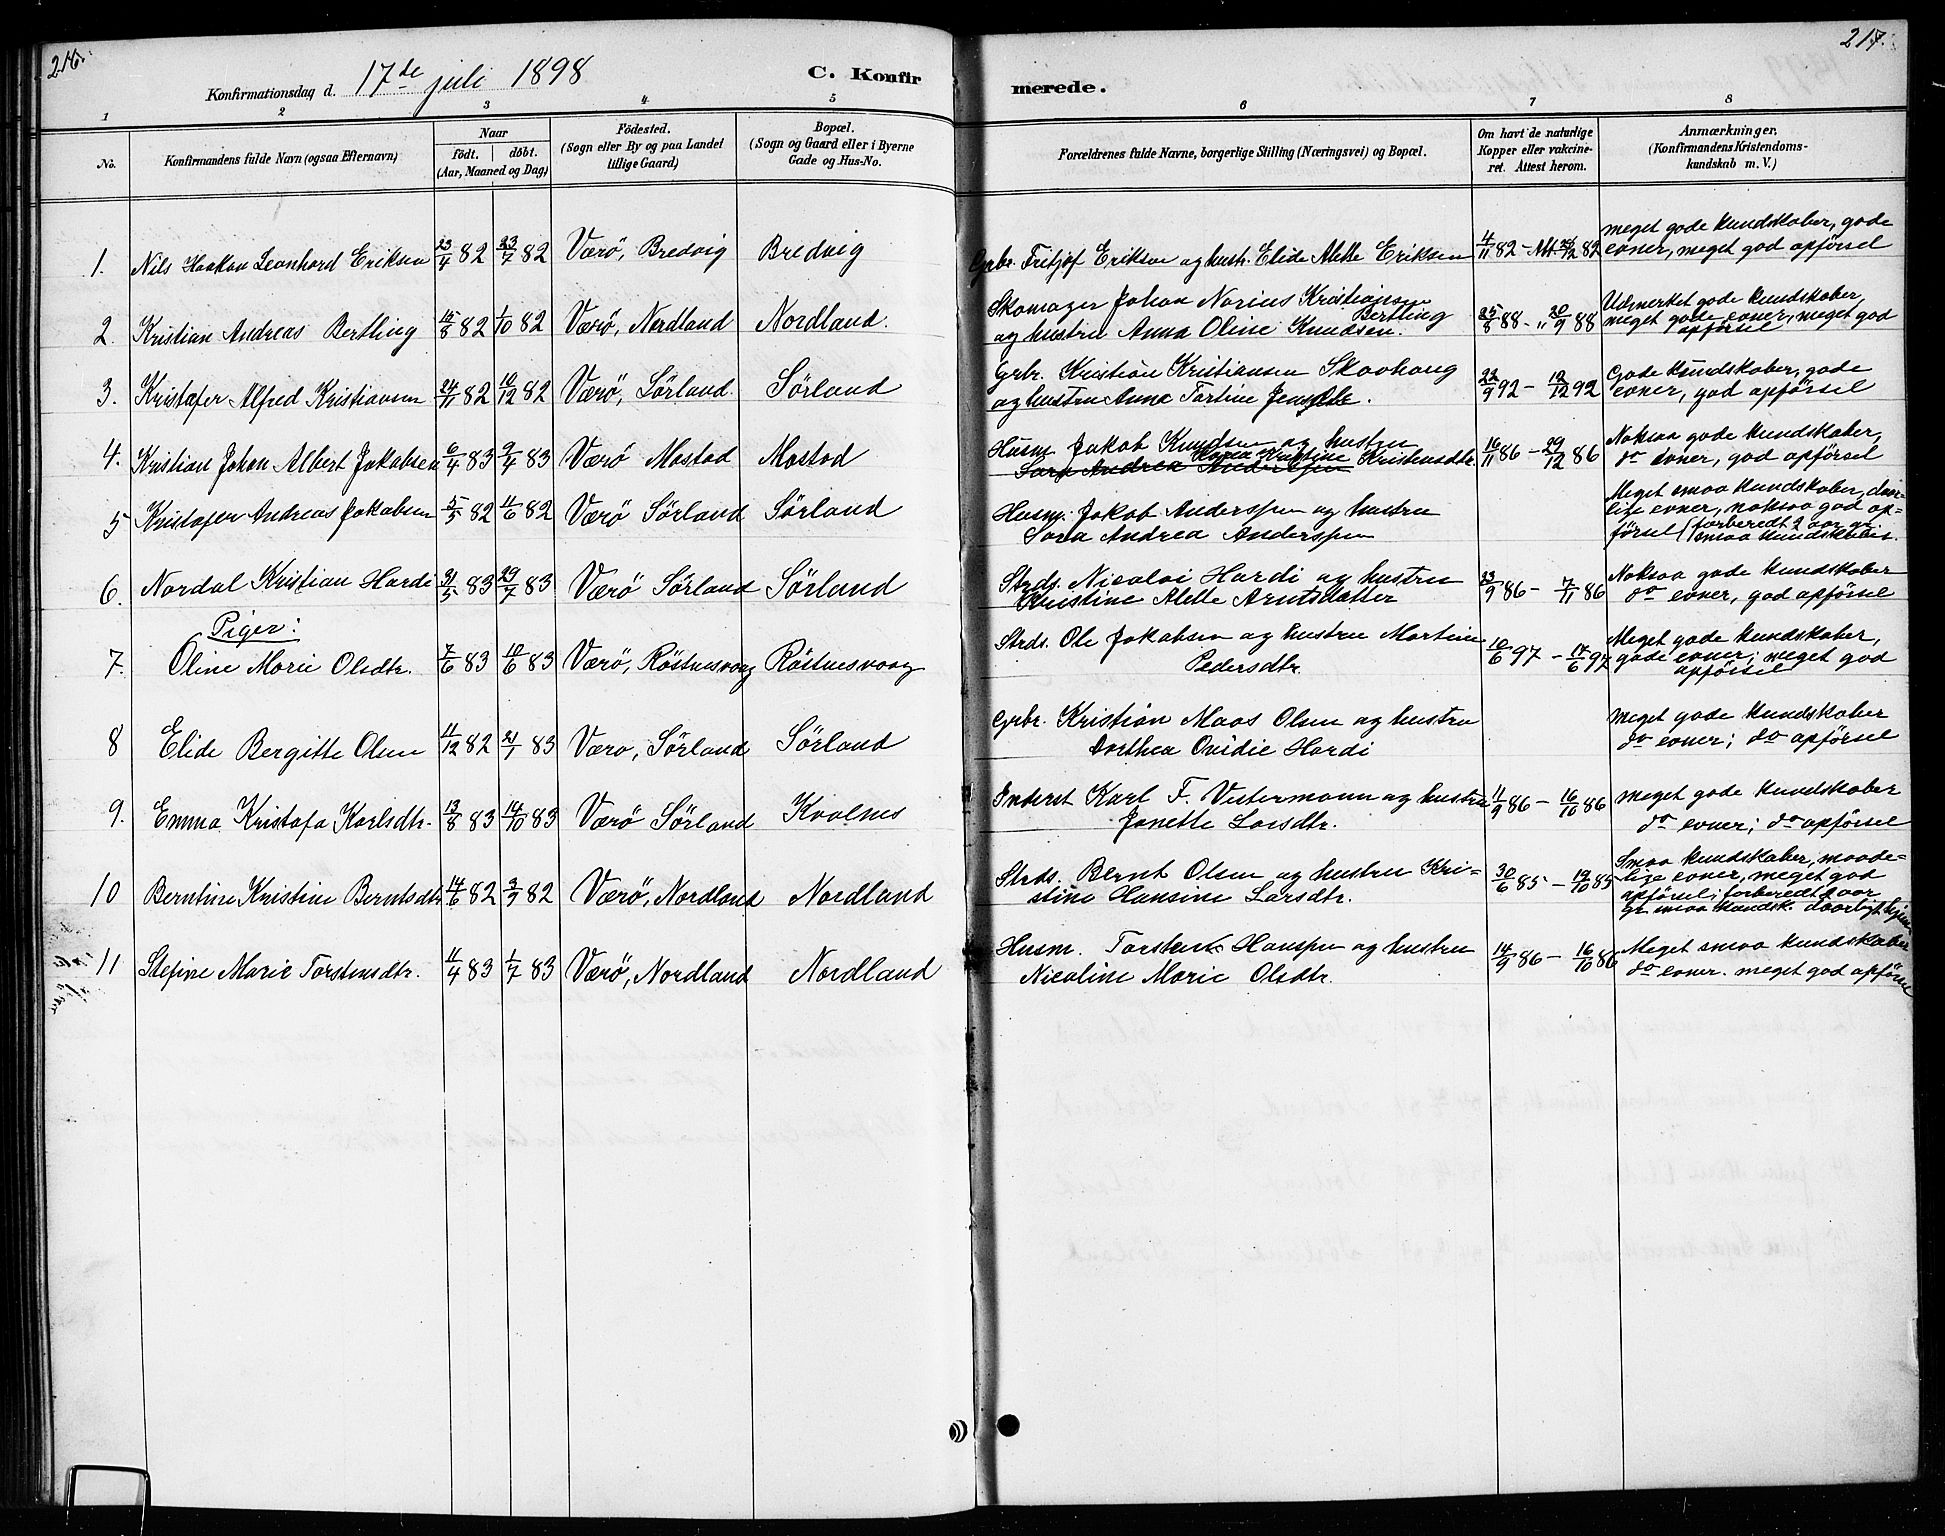 216.
217.
Konfirmationsdag d. 17de juli 1898
C. Konfirmerede.
1 2 3 4 5 6 7 8
No.
Konfirmandens fulde Navn (ogsaa Efternavn)
Naar
födt. döbt.
(Aar, Maaned og Dag)
Födested.
(Sogn eller By og paa Landet
tillige Gaard)
Bopæl.
(Sogn og Gaard eller i Byerne
Gade og Hus-No.
Forældrenes fulde Navne, borgerlige Stilling (Næringsvei) og Bopæl.
Om havt de naturlige
Kopper eller vakcine-
ret. Attest herom.
Anmærkninger.
(Konfirmandens Kristendoms-
kundskab m. V.)
1. Nils Haakon Leonhard Eriksen 23/4 82 23/7 82 Værö, Bredvig Bredvig
Grbr. Fritjof Eriksen og hustr. Elide Alette Eriksen 4/11 82 - Att. 82
meget gode kundskaber, gode
evner, meget god opförsel
2. Kristian Andreas Bertling 15/8 82 1/10 82 Værö, Nordland Nordland.
Skomager Johan Norius Kristiansen
Bertling
og hustru Anna Oline Knudsen. 25/8 88 - " 20/9 88
Udmerket gode kundskaber,
meget gode evner, meget god
opförsel
3. Kristofer Alfred Kristiansen 24/11 82 10/12 82 Værö, Sörland. Sörland
Grbr. Kristian Kristiansen Skovhaug
og hustru Anna Tortine 22/9 92 - 12/12 92
Gode kundskaber, gode
evner, god opförsel
4. Kristian Johan Albert Jakobsen 6/4 83 9/4 83 Værö Mostad Mostad
Husm. Jakob Knudsen og hustru
Kristine Kristensdtr.
Sara Andrea Anderspen 16/11 86 - 29/12 86
Noksaa gode kundskaber,
do evner, god opförsel
5 Kristofer Andreas Jakobsen 5/5 82 11/6 82 Værö Sörland Sörland
Husm. Jakob Anderspen og hustru
Sara Andrea Anderspen
Meget smaa kundskaber, daar-
lige evner, noksaa god op-
försel (forberedt 2 aar gr.
smaa kundskaber.
6. Nordal Kristian Hardi 31/5 83 29/7 83 Værö Sörland Sörland
Strds. Nicolai Hardi og hustru
Kristine Alette Arntsdatter 23/9 86 - 7/11 86
Noksaa gode kundskaber
do evner, god opförsel
Piger:
7. Oline Marie Olsdtr. 7/6 83 10/6 83 Værö, Röstnesvaag Röstnesvaag
Strds. Ole Jakobsen og hustru Martine
Pedersdtr. 10/6 97 - 14/6 97
Meget gode kundskaber,
gode evner; meget god
opförsel
8 Elide Bergitte Olsen 11/12 82 21/1 83 Værö, Sörland Sörland
Grbr. Kristian Maas Olsen og hustru
Dorthea Ovidie Hardi
meget gode kundskaber
do evner; do opförsel
9. Emma Kristofa Karlsdtr. 13/8 83 14/10 83 Værö Sörland Kvalnes
Inderst Karl F. Vestermann og hustru
Janette Larsdtr. 11/9 86 - 16/10 86
meget gode kundskaber
do evner; do opförsel
10 Berntine Kristine Berntsdtr 14/6 82 82 Værö, Nordland Nordland
Strds. Bernt Olsen og hustru Kri-
stine Hansine Larsdtr. 30/6 85 - 19/10 85
Smaa kundskaber, maade-
lige evner, meget god
opförsel; forberedt 2 aar
gr. smaa kundsk.
11 Stefine Marie Torstensdtr. 11/4 83 1/7 83 Værö, Nordland Nordland
Husm. Torsten Hanspen og hustru
Nicoline Marie Olsdtr. 14/9 86 - 16/10 86
Meget smaa kundskaber
do evner. meget god opförsel